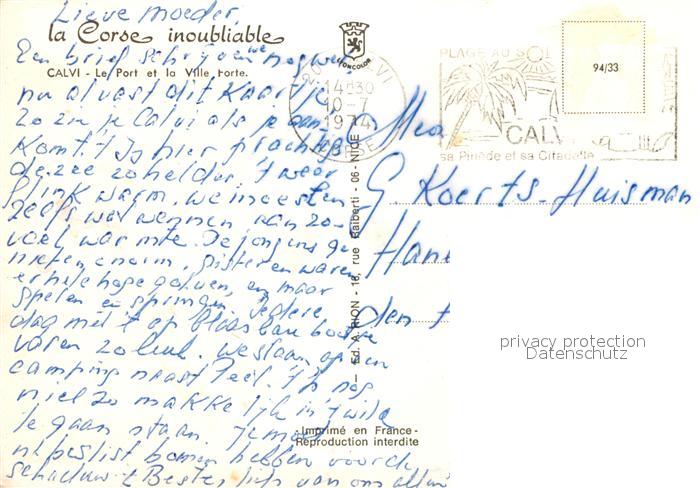 Lieve moeder,
la Corse inoubliable
Een brief schrijven we nog wel,
CALVI - Le Port et la Ville forte.
nu alvast dit kaartje,
zo zie je Calvi als je aan-
komt. 't Is hier prachtig
de zee zo helder, 't weer
flink warm. We moesten
zelfs wat wennen aan zo-
veel warmte. De jongens ge-
nieten enorm, gisteren waren
er hele hoge golven, en maar
spelen en springen. Iedere
dag met 't opblaasbare bootje
varen zo leuk. We staan op een
camping naast Teil. 't Is nog
niet zo makkelijk in 't wild
te gaan staan. Je moet
beslist bomen hebben voor de
schaduw. 't Beste, liefs van ons allen
MONCOLOR
CALVI
14H30
10-7
1974
CORSE
PLAGE AU SOL
CALVI
sa Pinède et sa Citadelle
94/33
Mevr
G Koerts-Huisman
den
Ed. A. RION - 18, rue Raiberti - 06-NICE
privacy protection
Datenschutz
-Imprimé en France-
Reproduction interdite